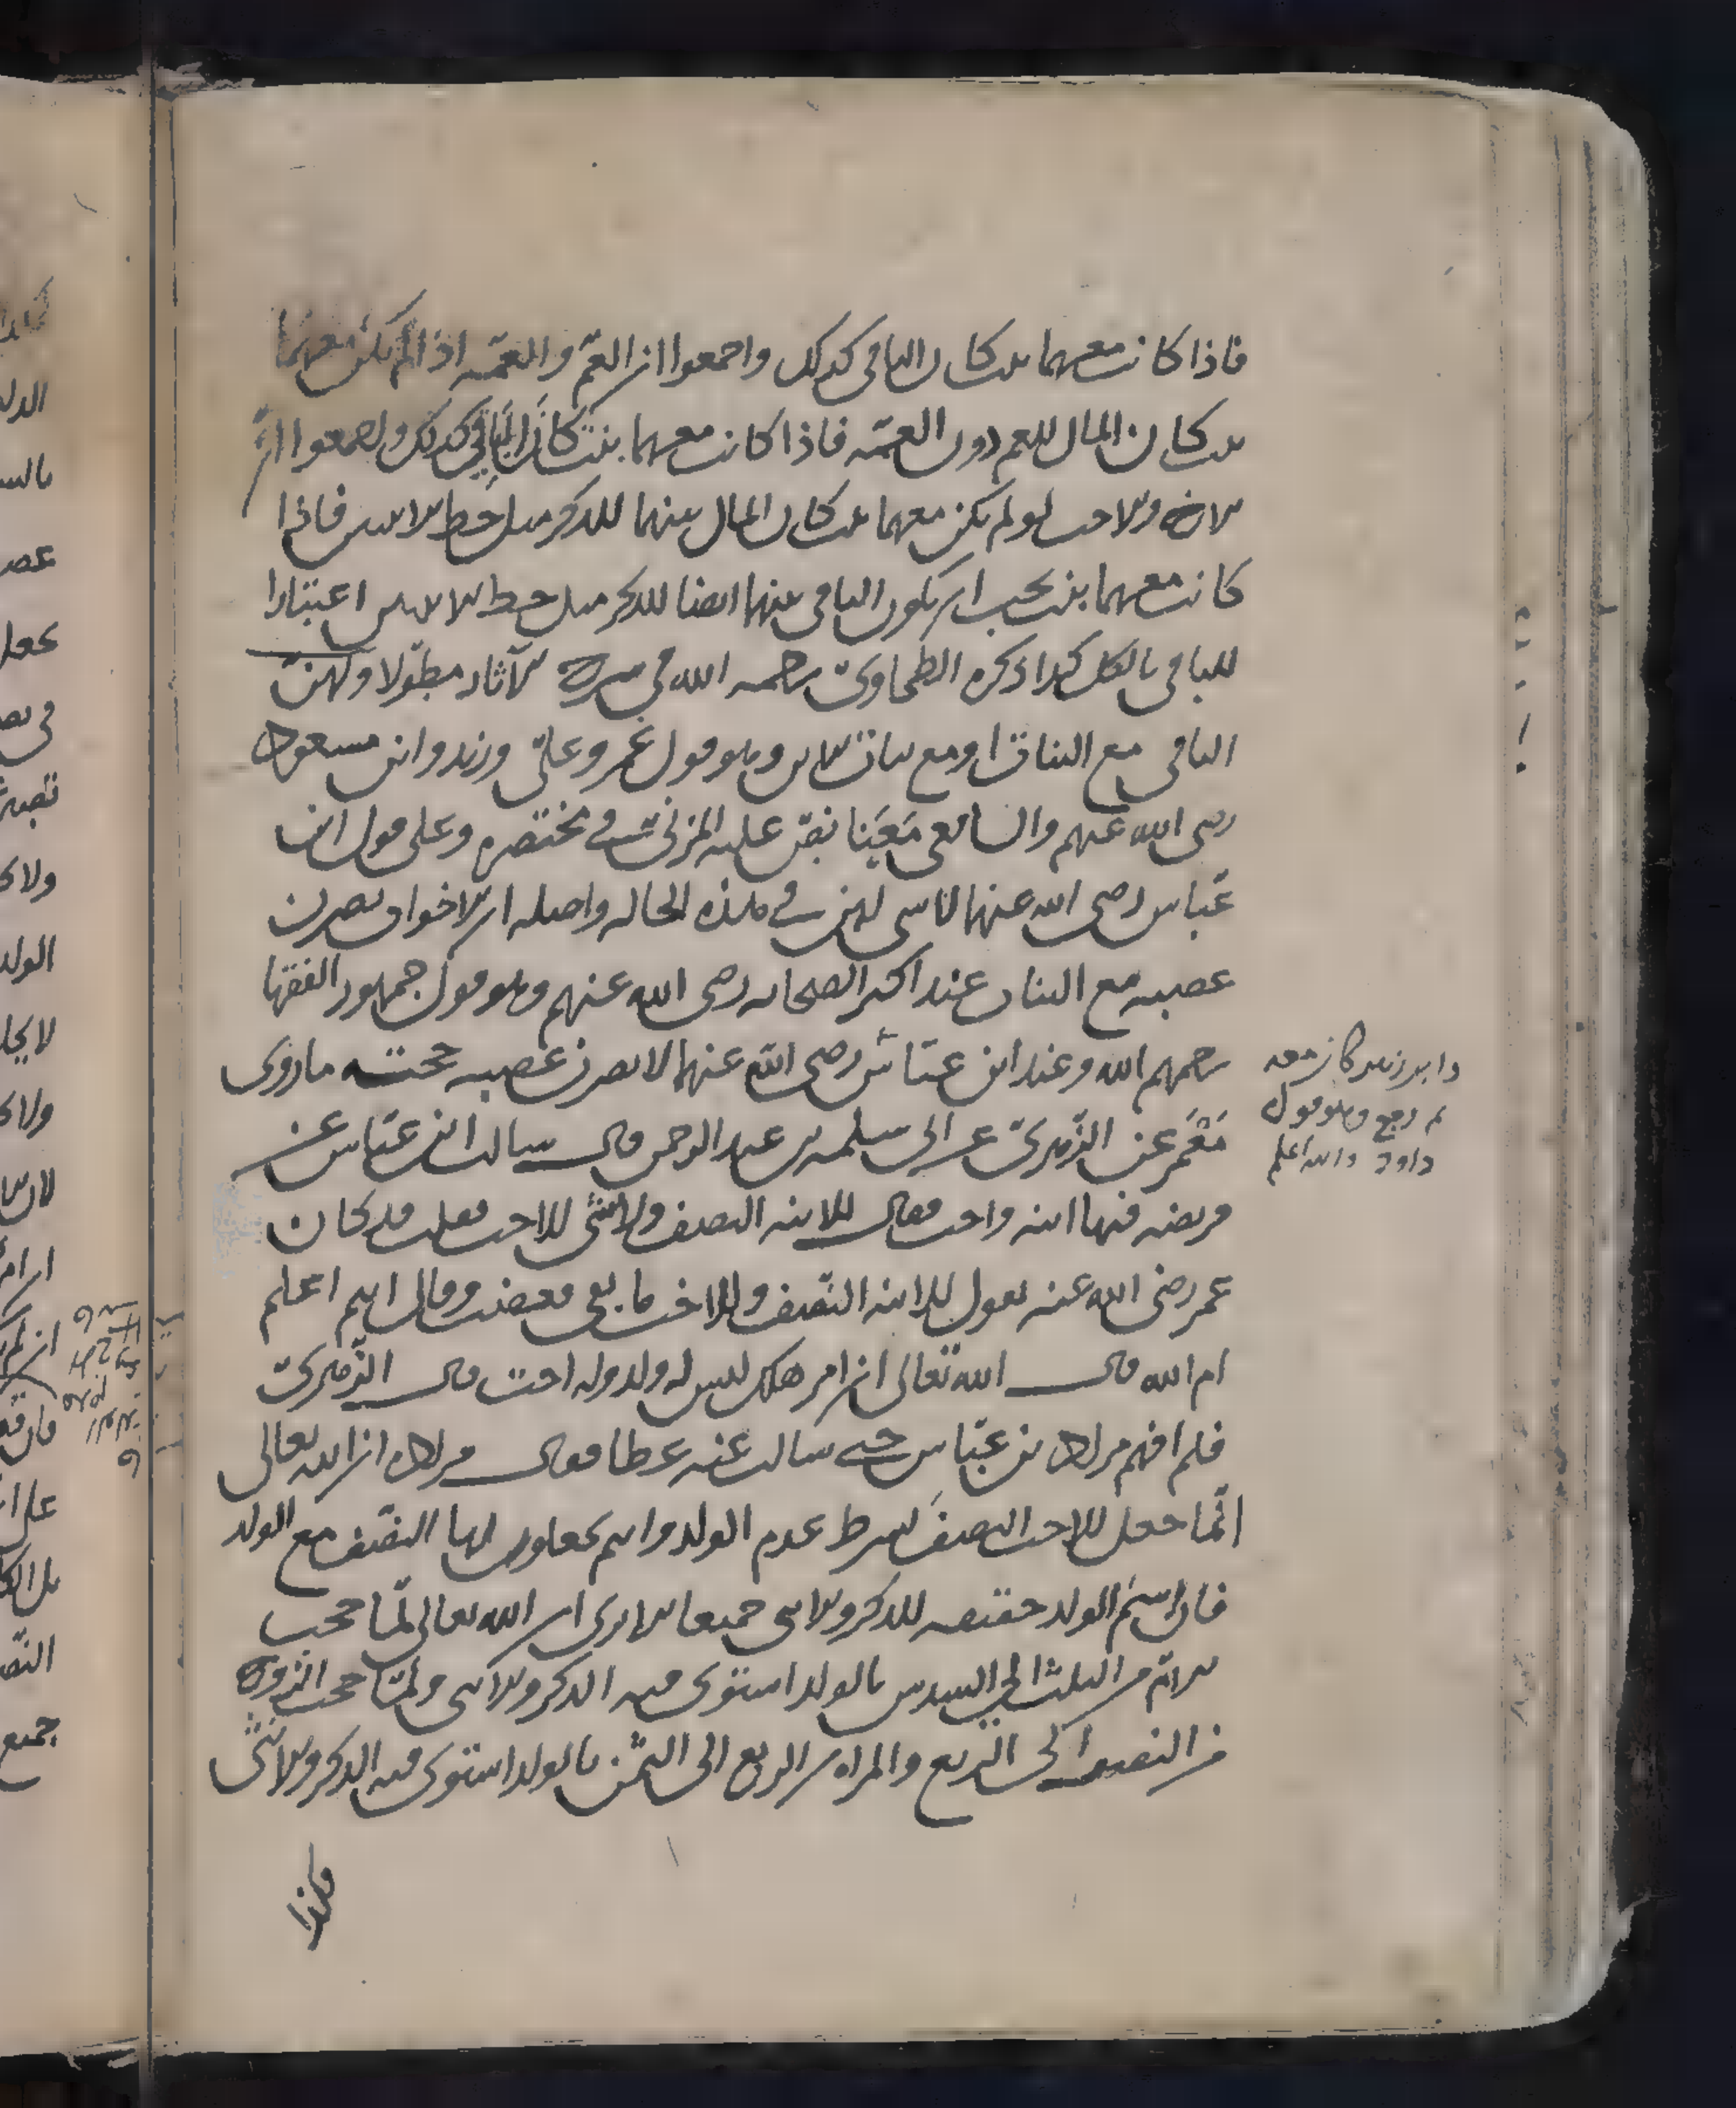 فاذا كانت معهما بنت كان الباقي كذلك واجمعوا ان العمّ والعمّه اذا لم يكن معهما
بنت كان المال للعم دون العمّه فاذا كانت معهما بنت كان الباقي كذلك واجمعوا انّ
الاخ والاخت لو لم يكن معهما بنت كان المال بينهما للذكر مثل حظ الانثيين فاذا
كانت معهما بنت يجب ان يكون الباقي بينهما ايضا للذكر مثل حظ الانثيين اعتبارا
للباقي بالكل كذا ذكره الطحاويّ رحمه الله في شرح الآثار مطوّلا ولهنّ
الباقي مع البنات او مع بنات الابن وهو قول عمر وعليّ وزيد وابن مسعود
رضي الله عنهم والشافعي معنا نصّ عليه المزنيّ في مختصره وعلى قول ابن
عبّاس رضي الله عنهما لا شي لهنّ في هذه الحاله واصله ان الاخوات يصرن
عصبه مع البنات عند اكثر الصحابه رضي الله عنهم وهو قول جمهور الفقها
رحمهم الله وعند ابن عبّاس رضي الله عنهما لا يصرن عصبه حجته ما روى
مَعْمَر عن الزّهريّ عن ابي سلمه بن عبد الرحمن قال سالت ابن عبّاس عن
فريضه فيها ابنه واخت فقال للابنه النصف ولا شئ للاخت فقلت قد كان
عمر رضي الله عنه يقول للابنه النّصف وللاخت ما بقي فغضب وقال اانتم اعلم
ام الله قال الله تعالى ان امرؤ هلك ليس له ولد وله اخت قال الزّهريّ
فلم افهم مراد ابن عبّاس حتى سالت عنه عطا فقال مراده ان الله تعالى
انّما جعل للاخت النصف بشرط عدم الولد وانتم تجعلون لها النصّف مع الولد
فان اسم الولد حقيقه للذكر والانثى جميعا الا ترى ان الله تعالى لمّا حجب
الامّ من الثلث الى السدس بالولد استوى فيه الذكر والانثى ولمّا حجب الزوج
من النصف الى الرّبع والمراه من الربع الى الثّمن بالولد استوى فيه الذكر والانثى
هكذا
كان معه
وهو قول
داود والله اعلم